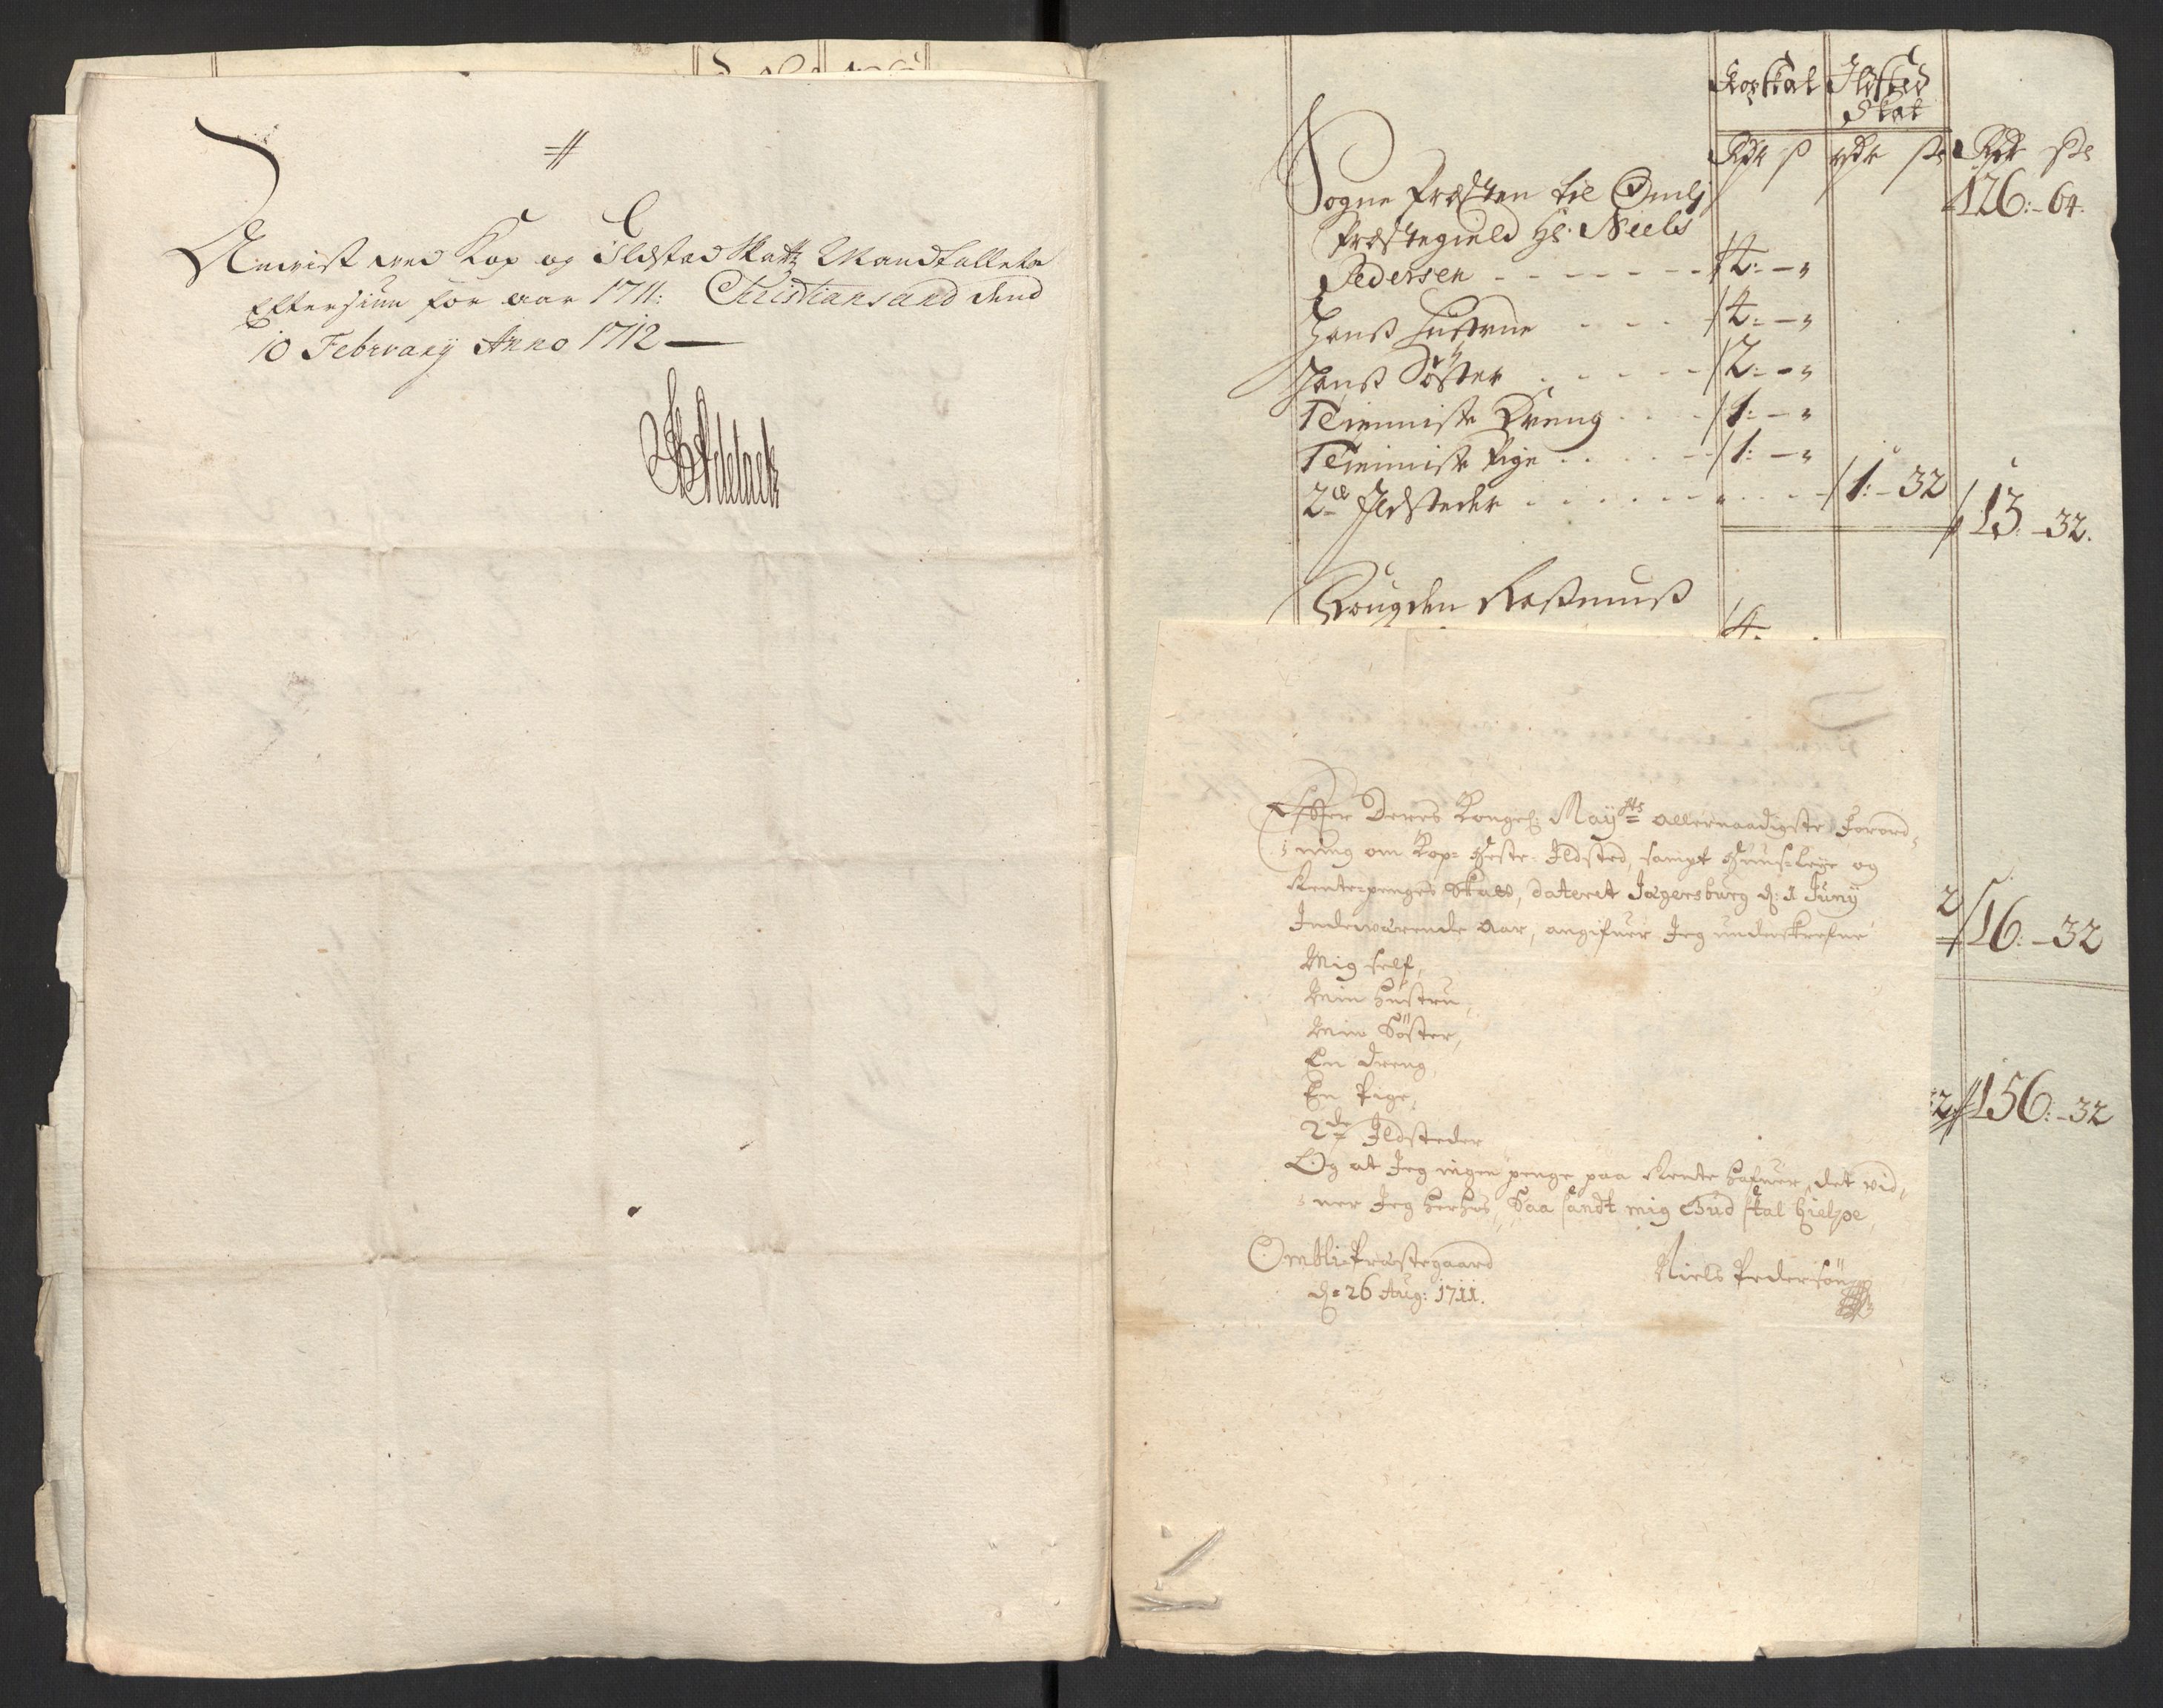 E
Anvist ved Kop og Ildsted Skatte Mandtallets
Eftersiun for aar 1711: Christiansand dend
10 February Anno 1712
Kopskat Ildsted
Skat
Rdr ß rdr ße Rdr ße
126:-64.
Sogne Præsten til Omlj
Præstegield Hr: Niels
Pedersen - - - - - - - 4:-„
Hanß Hustrue - - - - 4:-„
Hanß Søster - - - - - 2:-„
Tienniste Dreng - - - 1:-„
Tienniste Pige - - - - 1:-„
2de Ildsteder - - - - - - - 1:-32 13:-32.
Fougden Rasmus
4.
2 16:-32
32 156:-32
Effter Deres Kongel: Mayts allernaadigste Forord-
ning om Kop- Heste- Ildsted, sampt Huus-leye og
Rente-penges Skatt, dateret Jagersburg d: 1 Juny
Indeværende Aar, angifuer Jeg underskrefne
Mig self,
Min Hustru,
Min Söster,
En dreng,
En Pige,
2de Ildsteder
Og at Jeg ingen penge paa Rente hafuer, det vid-
ner Jeg herhos, Saa sandt mig Gud skal hielpe,
Ombli-Præstegaard Niels Pedersön
d: 26 Aug: 1711.